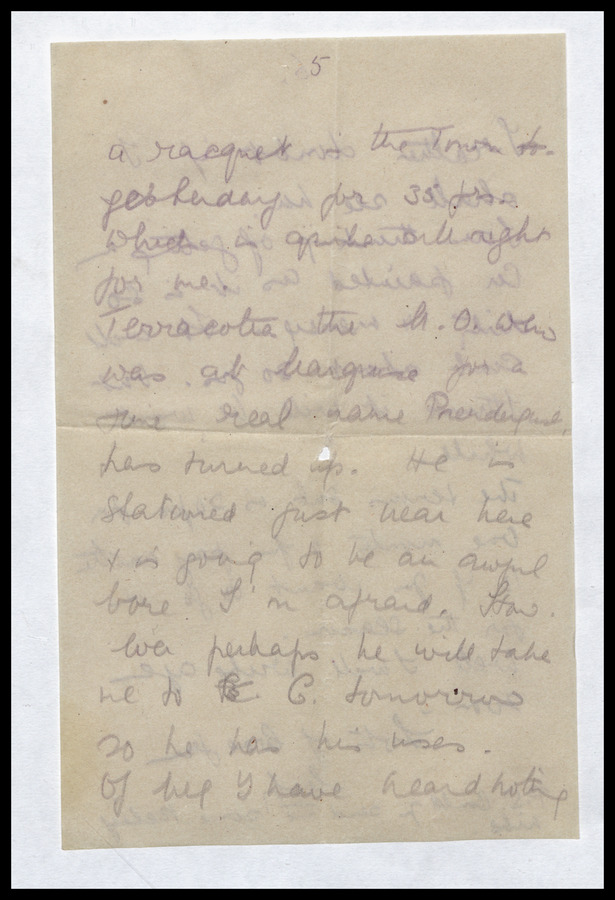 5
a racquet in the Town to-
yesterday for 35 frs.
which is quite
for me.
Terracotta the M. O. who
was at Marquise for a
time real name Prendergast,
has turned up. He is
stationed just near here
& is going to be an awful
bore I'm afraid. How-
ever perhaps he will take
me to B. C. tomorrow
so he has his uses.
Of Meg I have heard nothing